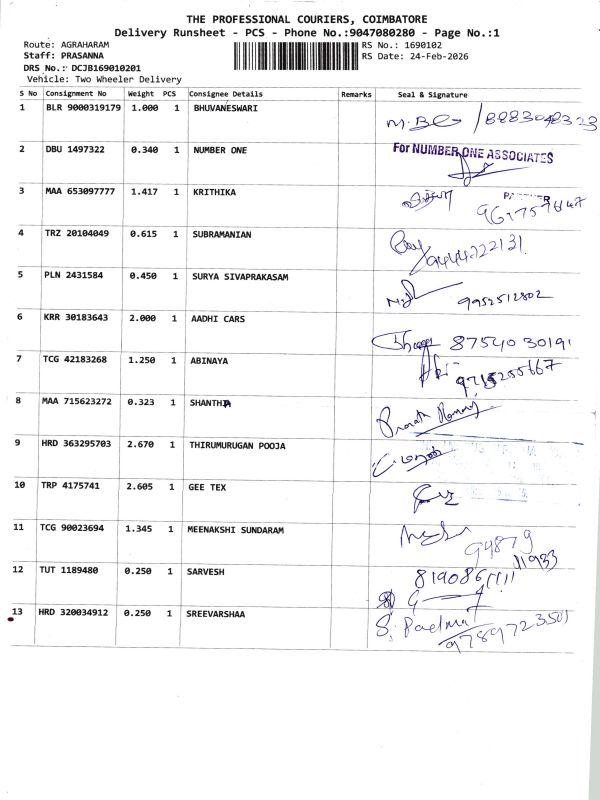 THE PROFESSIONAL COURIERS, COIMBATORE
Delivery Runsheet - PCS - Phone No.:9047080280 - Page No.:1
Route: AGRAHARAM RS No.: 1690102
Staff: PRASANNA RS Date: 24-Feb-2026
DRS No.: DCJB169010201
Vehicle: Two Wheeler Delivery
S No Consignment No Weight PCS Consignee Details Remarks Seal & Signature
1 BLR 9000319179 1.000 1 BHUVANESWARI
2 DBU 1497322 0.340 1 NUMBER ONE For NUMBER ONE ASSOCIATES
3 MAA 653097777 1.417 1 KRITHIKA
PARTNER
4 TRZ 20104049 0.615 1 SUBRAMANIAN
9444222131
5 PLN 2431584 0.450 1 SURYA SIVAPRAKASAM
9952512802
6 KRR 30183643 2.000 1 AADHI CARS
87540 30191
7 TCG 42183268 1.250 1 ABINAYA
9715255667
8 MAA 715623272 0.323 1 SHANTHA
9 HRD 363295703 2.670 1 THIRUMURUGAN POOJA
10 TRP 4175741 2.605 1 GEE TEX
11 TCG 90023694 1.345 1 MEENAKSHI SUNDARAM
94879
11933
12 TUT 1189480 0.250 1 SARVESH
13 HRD 320034912 0.250 1 SREEVARSHAA
S. Padma
9789723501